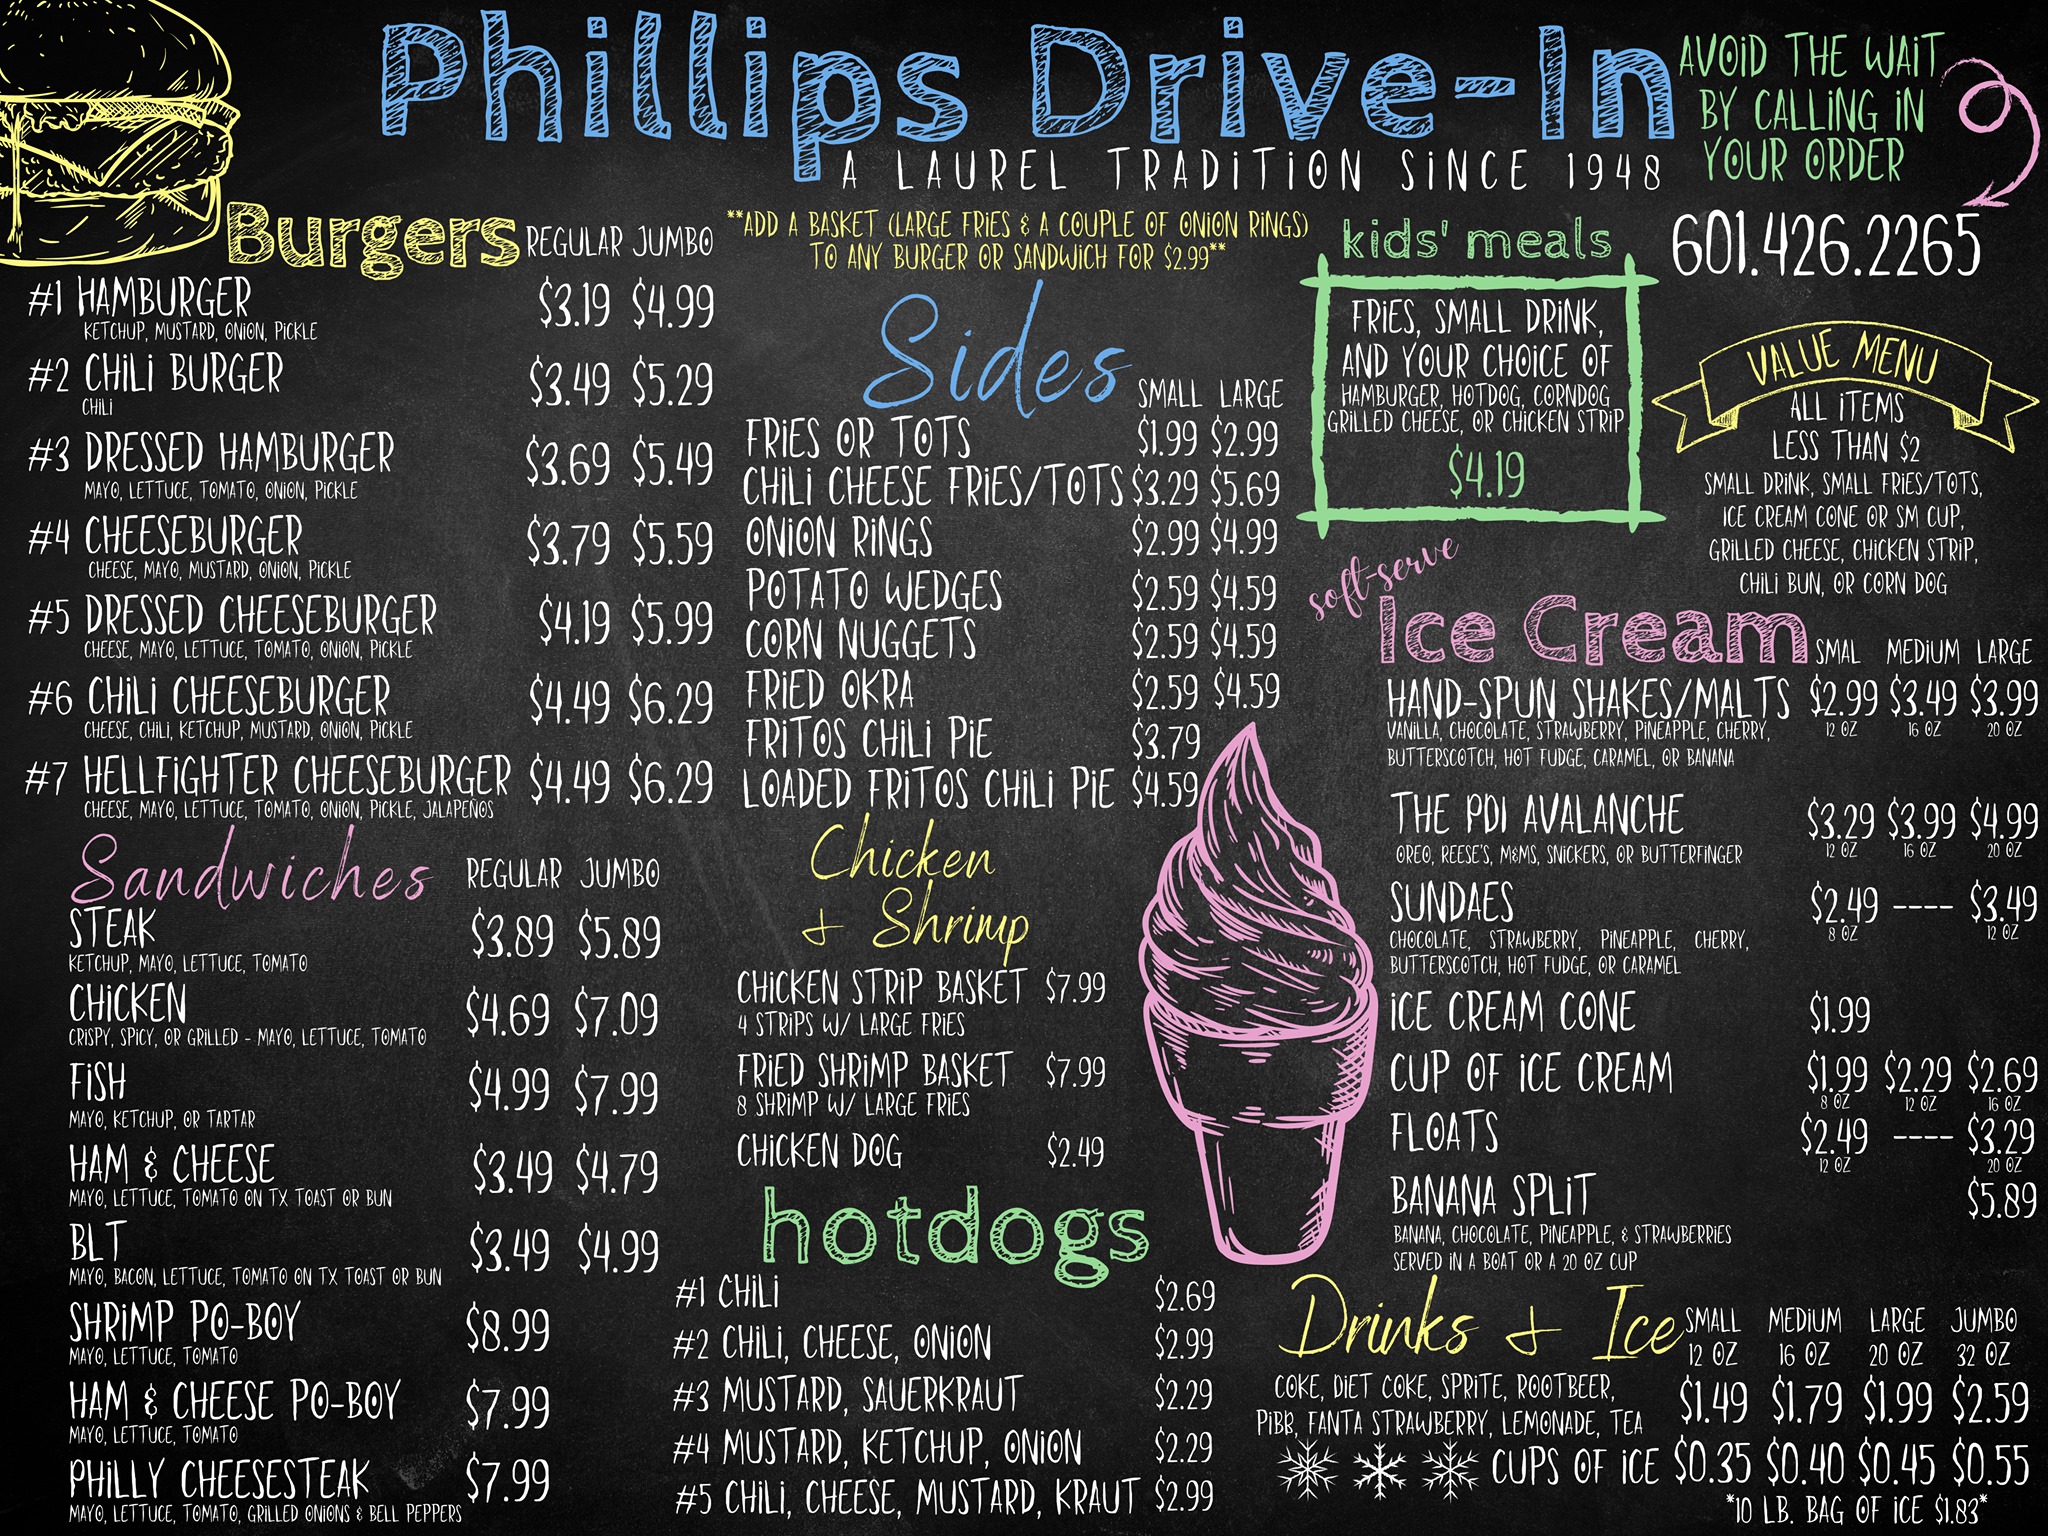 Phillips Drive-In
A LAUREL TRADITION SINCE 1948
AVOID THE WAIT
BY CALLING IN
YOUR ORDER
601.426.2265
Burgers REGULAR JUMBO
#1 HAMBURGER $3.19 $4.99
KETCHUP, MUSTARD, ONION, PICKLE
#2 CHILI BURGER $3.49 $5.29
CHILI
#3 DRESSED HAMBURGER $3.69 $5.49
MAYO, LETTUCE, TOMATO, ONION, PICKLE
#4 CHEESEBURGER $3.79 $5.59
CHEESE, MAYO, MUSTARD, ONION, PICKLE
#5 DRESSED CHEESEBURGER $4.19 $5.99
CHEESE, MAYO, LETTUCE, TOMATO, ONION, PICKLE
#6 CHILI CHEESEBURGER $4.49 $6.29
CHEESE, CHILI, KETCHUP, MUSTARD, ONION, PICKLE
#7 HELLFIGHTER CHEESEBURGER $4.49 $6.29
CHEESE, MAYO, LETTUCE, TOMATO, ONION, PICKLE, JALAPEÑOS
Sandwiches REGULAR JUMBO
STEAK $3.89 $5.89
KETCHUP, MAYO, LETTUCE, TOMATO
CHICKEN $4.69 $7.09
CRISPY, SPICY, OR GRILLED - MAYO, LETTUCE, TOMATO
FISH $4.99 $7.99
MAYO, KETCHUP, OR TARTAR
HAM & CHEESE $3.49 $4.79
MAYO, LETTUCE, TOMATO ON TX TOAST OR BUN
BLT $3.49 $4.99
MAYO, BACON, LETTUCE, TOMATO ON TX TOAST OR BUN
SHRIMP PO-BOY $8.99
MAYO, LETTUCE, TOMATO
HAM & CHEESE PO-BOY $7.99
MAYO, LETTUCE, TOMATO
PHILLY CHEESESTEAK $7.99
MAYO, LETTUCE, TOMATO, GRILLED ONIONS & BELL PEPPERS
**ADD A BASKET (LARGE FRIES & A COUPLE OF ONION RINGS)
TO ANY BURGER OR SANDWICH FOR $2.99**
Sides SMALL LARGE
FRIES OR TOTS $1.99 $2.99
CHILI CHEESE FRIES/TOTS $3.29 $5.69
ONION RINGS $2.99 $4.99
POTATO WEDGES $2.59 $4.59
CORN NUGGETS $2.59 $4.59
FRIED OKRA $2.59 $4.59
FRITOS CHILI PIE $3.79
LOADED FRITOS CHILI PIE $4.59
Chicken
& Shrimp
CHICKEN STRIP BASKET $7.99
4 STRIPS W/ LARGE FRIES
FRIED SHRIMP BASKET $7.99
8 SHRIMP W/ LARGE FRIES
CHICKEN DOG $2.49
hotdogs
#1 CHILI $2.69
#2 CHILI, CHEESE, ONION $2.99
#3 MUSTARD, SAUERKRAUT $2.29
#4 MUSTARD, KETCHUP, ONION $2.29
#5 CHILI, CHEESE, MUSTARD, KRAUT $2.99
kids' meals
FRIES, SMALL DRINK,
AND YOUR CHOICE OF
HAMBURGER, HOTDOG, CORNDOG
GRILLED CHEESE, OR CHICKEN STRIP
$4.19
VALUE MENU
ALL ITEMS
LESS THAN $2
SMALL DRINK, SMALL FRIES/TOTS,
ICE CREAM CONE OR SM CUP,
GRILLED CHEESE, CHICKEN STRIP,
CHILI BUN, OR CORN DOG
soft-serve
Ice Cream SMAL MEDIUM LARGE
HAND-SPUN SHAKES/MALTS $2.99 $3.49 $3.99
VANILLA, CHOCOLATE, STRAWBERRY, PINEAPPLE, CHERRY, 12 OZ 16 OZ 20 OZ
BUTTERSCOTCH, HOT FUDGE, CARAMEL, OR BANANA
THE PDI AVALANCHE $3.29 $3.99 $4.99
OREO, REESE'S, M&MS, SNICKERS, OR BUTTERFINGER 12 OZ 16 OZ 20 OZ
SUNDAES $2.49 ---- $3.49
CHOCOLATE, STRAWBERRY, PINEAPPLE, CHERRY, 8 OZ 12 OZ
BUTTERSCOTCH, HOT FUDGE, OR CARAMEL
ICE CREAM CONE $1.99
CUP OF ICE CREAM $1.99 $2.29 $2.69
8 OZ 12 OZ 16 OZ
FLOATS $2.49 ---- $3.29
12 OZ 20 OZ
BANANA SPLIT $5.89
BANANA, CHOCOLATE, PINEAPPLE, & STRAWBERRIES
SERVED IN A BOAT OR A 20 OZ CUP
Drinks & Ice SMALL MEDIUM LARGE JUMBO
12 OZ 16 OZ 20 OZ 32 OZ
COKE, DIET COKE, SPRITE, ROOTBEER, $1.49 $1.79 $1.99 $2.59
PIBB, FANTA STRAWBERRY, LEMONADE, TEA
CUPS OF ICE $0.35 $0.40 $0.45 $0.55
*10 LB. BAG OF ICE $1.83*